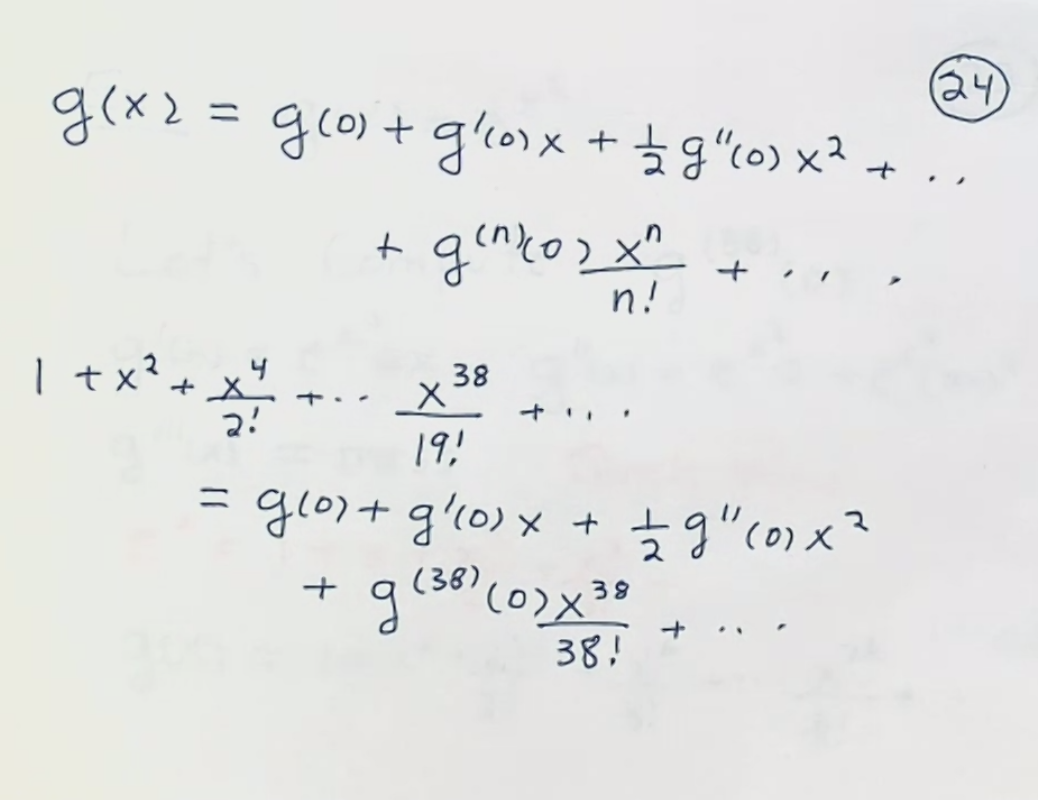 24
g(x) = g(0) + g'(0) x + 1/2 g''(0) x² + ..
+ g⁽ⁿ⁾(0) xⁿ/n! + ... .
1 + x² + x⁴/2! + ·· x³⁸/19! + ... .
= g(0) + g'(0) x + 1/2 g''(0) x²
+ g⁽³⁸⁾(0) x³⁸/38! + ...